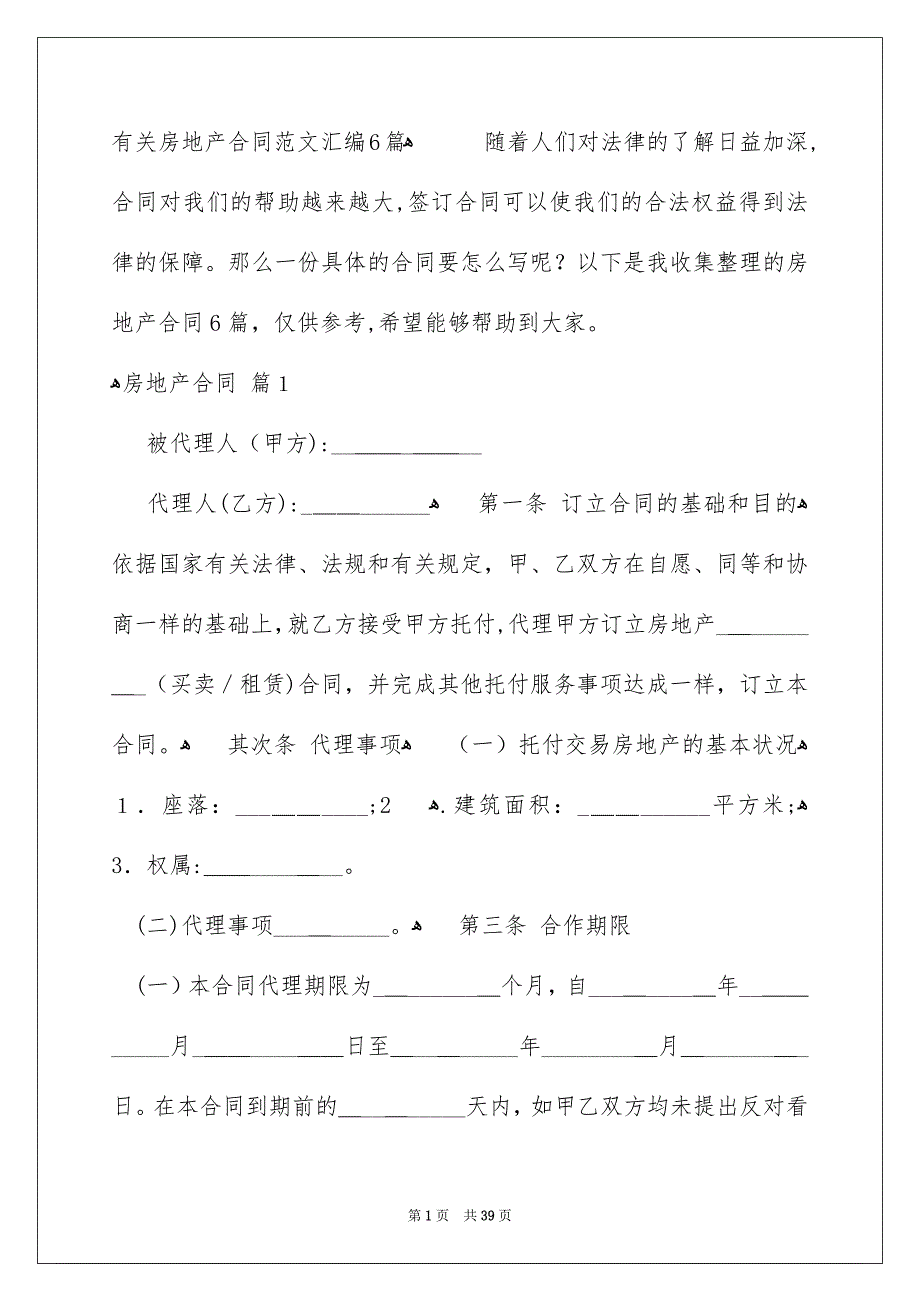 有关房地产合同范文汇编6篇ﻫ　　随着人们对法律的了解日益加深,
合同对我们的帮助越来越大,签订合同可以使我们的合法权益得到法
律的保障。那么一份具体的合同要怎么写呢？以下是我收集整理的房
地产合同６篇，仅供参考,希望能够帮助到大家。
ﻫ房地产合同 篇１
被代理人（甲方):_____________
代理人(乙方):___________ﻫ　第一条 订立合同的基础和目的ﻫ
依据国家有关法律、法规和有关规定，甲、乙双方在自愿、同等和协
商一样的基础上,就乙方接受甲方托付,代理甲方订立房地产________
___（买卖／租赁)合同，并完成其他托付服务事项达成一样，订立本
合同。ﻫ　其次条 代理事项ﻫ　（一）托付交易房地产的基本状况ﻫ
１．座落：___________;2ﻫ.建筑面积：___________平方米;ﻫ
3．权属:____________。
(二)代理事项__________。ﻫ　第三条 合作期限
(一）本合同代理期限为___________个月，自___________年______
_____月_____________日至___________年__________月___________
日。在本合同到期前的___________天内,如甲乙双方均未提出反对看
第 1 页　共 39 页